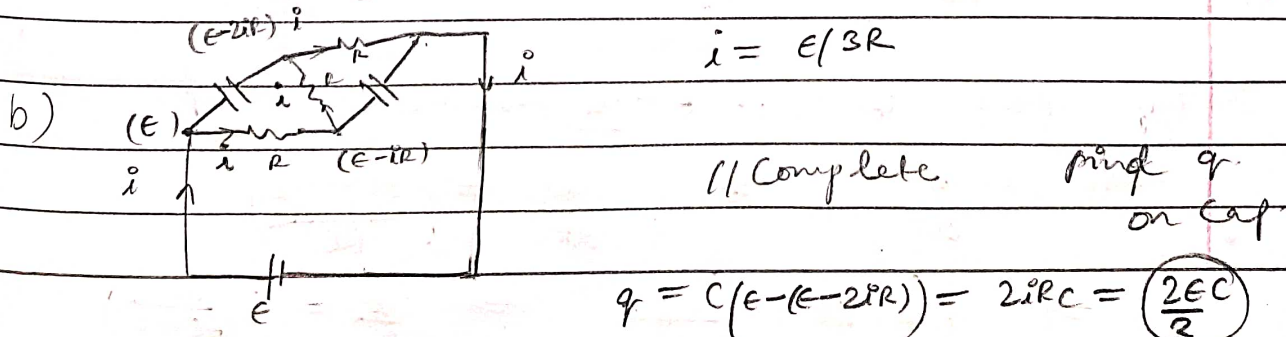 (ε-2iR) i
R
i = ε/3R
i
R
i
b) (ε)
i R (ε-iR)
i
// Complete find q
on cap
ε
q = C(ε-(ε-2iR)) = 2iRC = 2εC/3